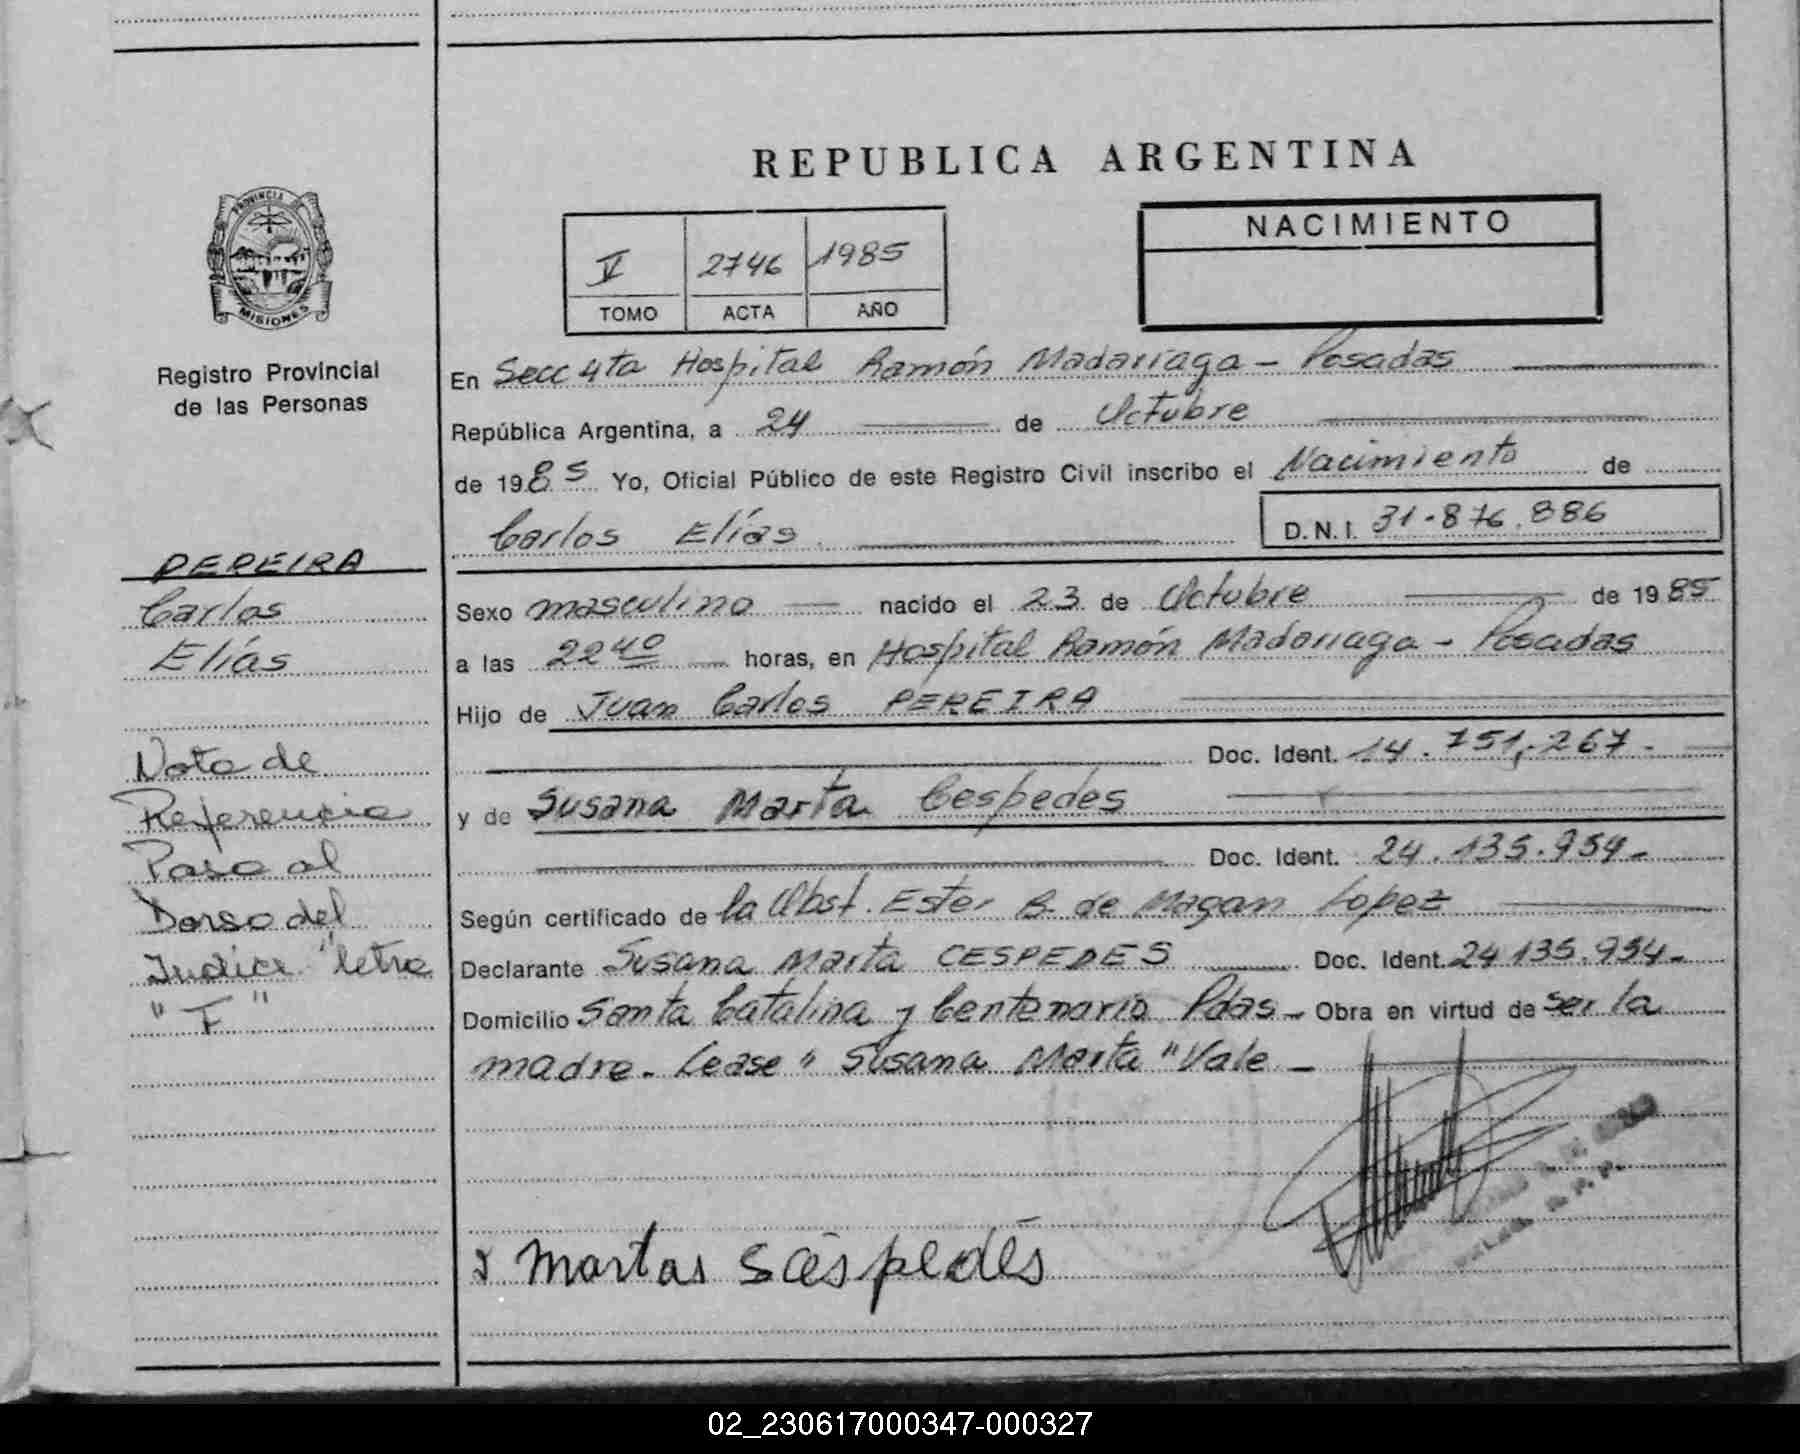 REPUBLICA ARGENTINA
V 2746 1985
TOMO ACTA AÑO
NACIMIENTO
PROVINCIA DE
MISIONES
Registro Provincial
de las Personas
En Secc 4ta Hospital Ramón Madariaga - Posadas
República Argentina, a 24 de Octubre
de 1985 Yo, Oficial Público de este Registro Civil inscribo el Nacimiento de
Carlos Elías. D.N.I. 31.876.886
PEREIRA
Carlos
Elías
Sexo masculino nacido el 23 de Octubre de 1985
a las 22 40 horas, en Hospital Ramón Madariaga - Posadas
Hijo de Juan Carlos PEREIRA
Doc. Ident. 14.751.267.-
y de Susana Marta Cespedes
Doc. Ident. 24.135.954.-
Según certificado de la Obst. Ester B. de Magan Lopez
Declarante Susana Marta CESPEDES Doc. Ident. 24 135.954.-
Domicilio Santa Catalina y Centenario Pdas - Obra en virtud de ser la
madre. Lease "Susana Marta" Vale -
Nota de
Referencia
Pasa al
Dorso del
Indice "letra
"F"
Martas Sespedes
02_230617000347-000327